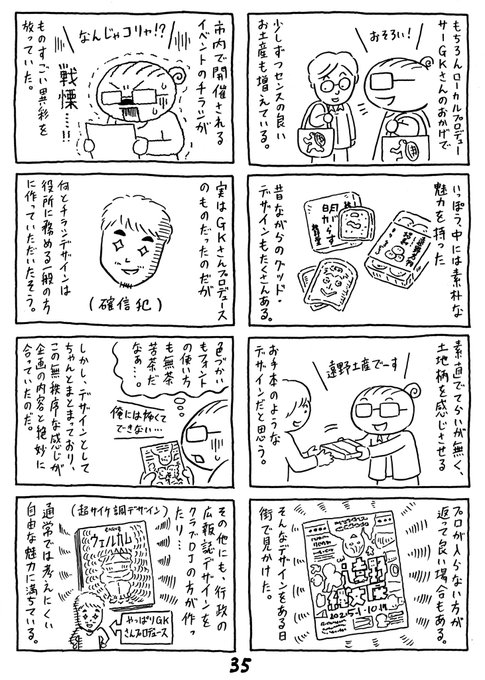 もちろんローカルプロデュー
サーGKさんのおかげで
おそろい!
少しずつセンスの良い
お土産も増えている。
いっぽう中には素朴な
魅力を持った
明がらす
昔ながらのグッド・
デザインもたくさんある。
素直でてらいが無く、
土地柄を感じさせる
遠野土産でーす
お手本のような
デザインだと思う。
プロが入らない方が
返って良い場合もある。
そんなデザインをある日
街で見かけた。
市内で開催される
イベントのチラシが
なんじゃコリャ!?
戦慄…!!
ものすごい異彩を
放っていた。
実はGKさんプロデュース
のものだったのだが
(確信犯)
何とチラシデザインは
役所に務める一般の方
に作っていただいたそう。
色づかい
もフォント
の使い方
も無茶
苦茶だ
なぁ…。
俺には怖くて
できない…
しかし、デザインとして
ちゃんとまとまっており、
この無秩序な感じが
企画の内容と絶妙に
合っていたのだ。
その他にも、行政の
広報誌デザインを
クラブDJの方が作っ
たり…
(超サイケ調デザイン)
ウェルカム
やっぱりGK
さんプロデュース
通常では考えにくい
自由な魅力に満ちている。
35